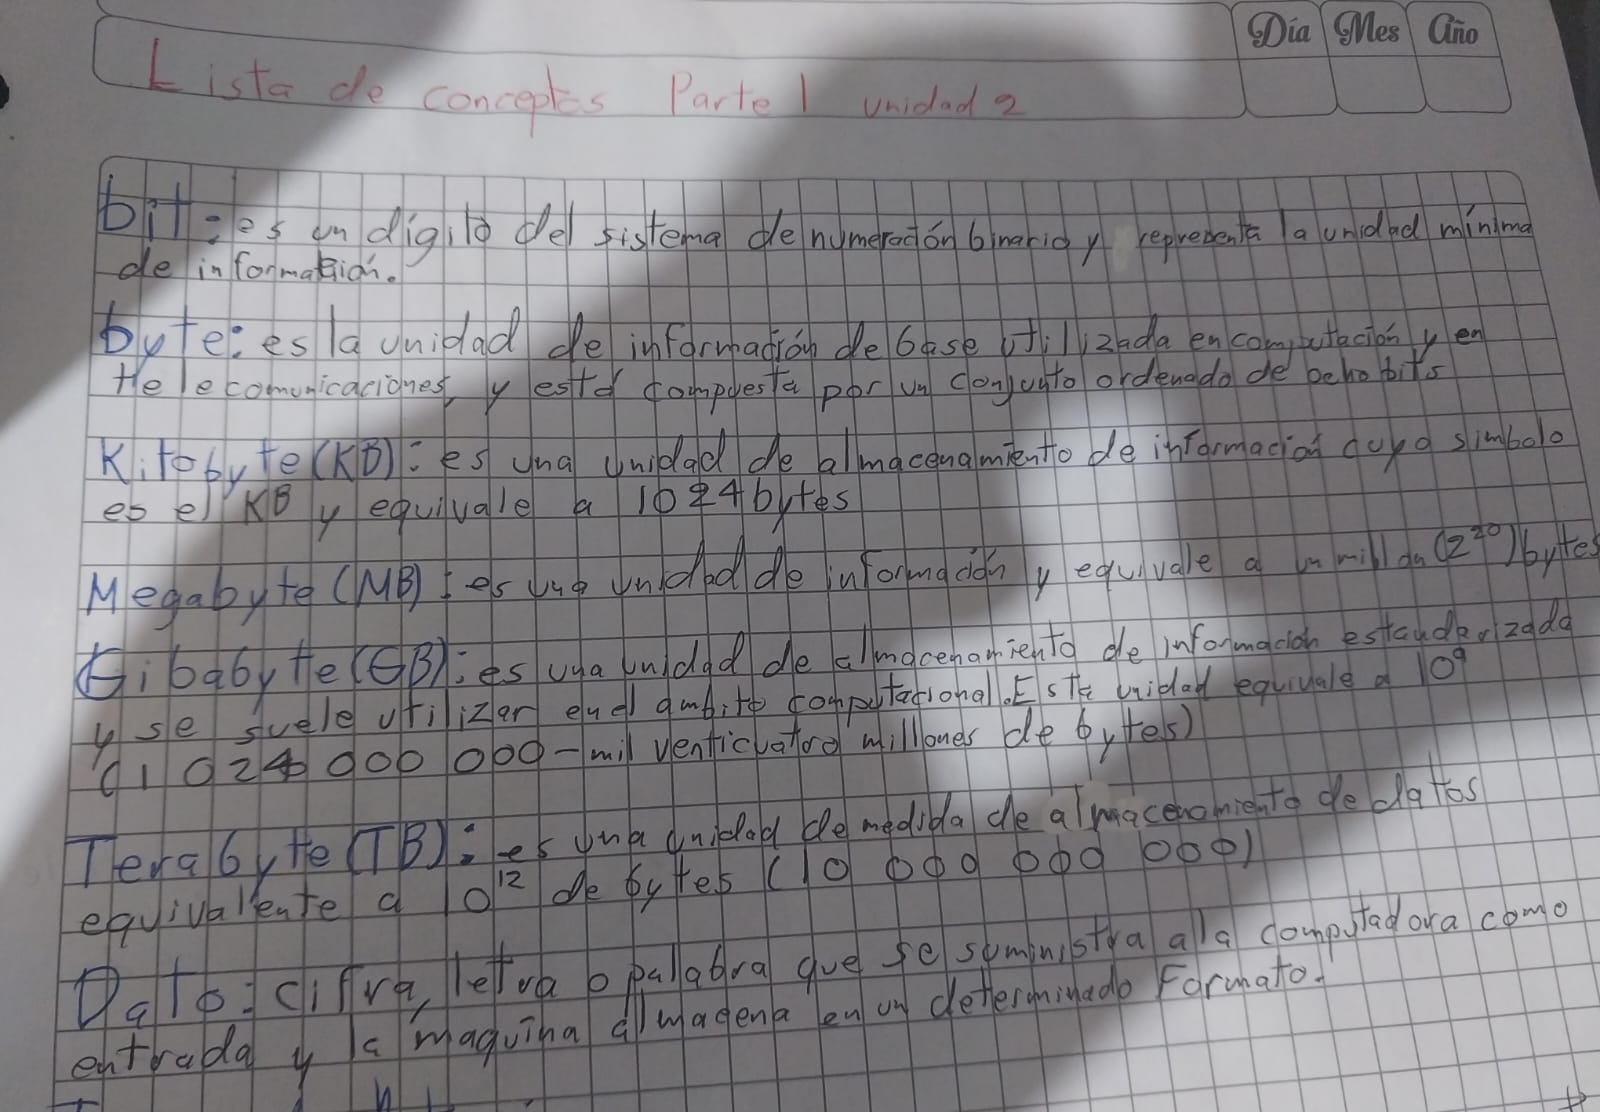 Día Mes Año
Lista de conceptos Parte 1 unidad 2
bit: es un digito del sistema de numeración binario y representa la unidad mínima
de información.
byte: es la unidad de información de base utilizada en computación y en
telecomunicaciones, y está compuesta por un conjunto ordenado de ocho bits
Kilobyte (KB): es una unidad de almacenamiento de información cuyo simbolo
es el KB y equivale a 1024 bytes
Megabyte (MB): es una unidad de información y equivale a un millón (2²⁰) bytes
Gibabyte (GB): es una unidad de almacenamiento de información estanderizada
y se suele utilizar en el ambito computacional. Esta unidad equivale a 10⁹
(1 024 000 000 - mil venticuatro millones de bytes)
Terabyte (TB): es una unidad de medida de almacenamiento de datos
equivalente a 10¹² de bytes (10 000 000 000)
Dato: cifra, letra o palabra que se suministra a la computadora como
entrada y la maquina almacena en un determinado formato.